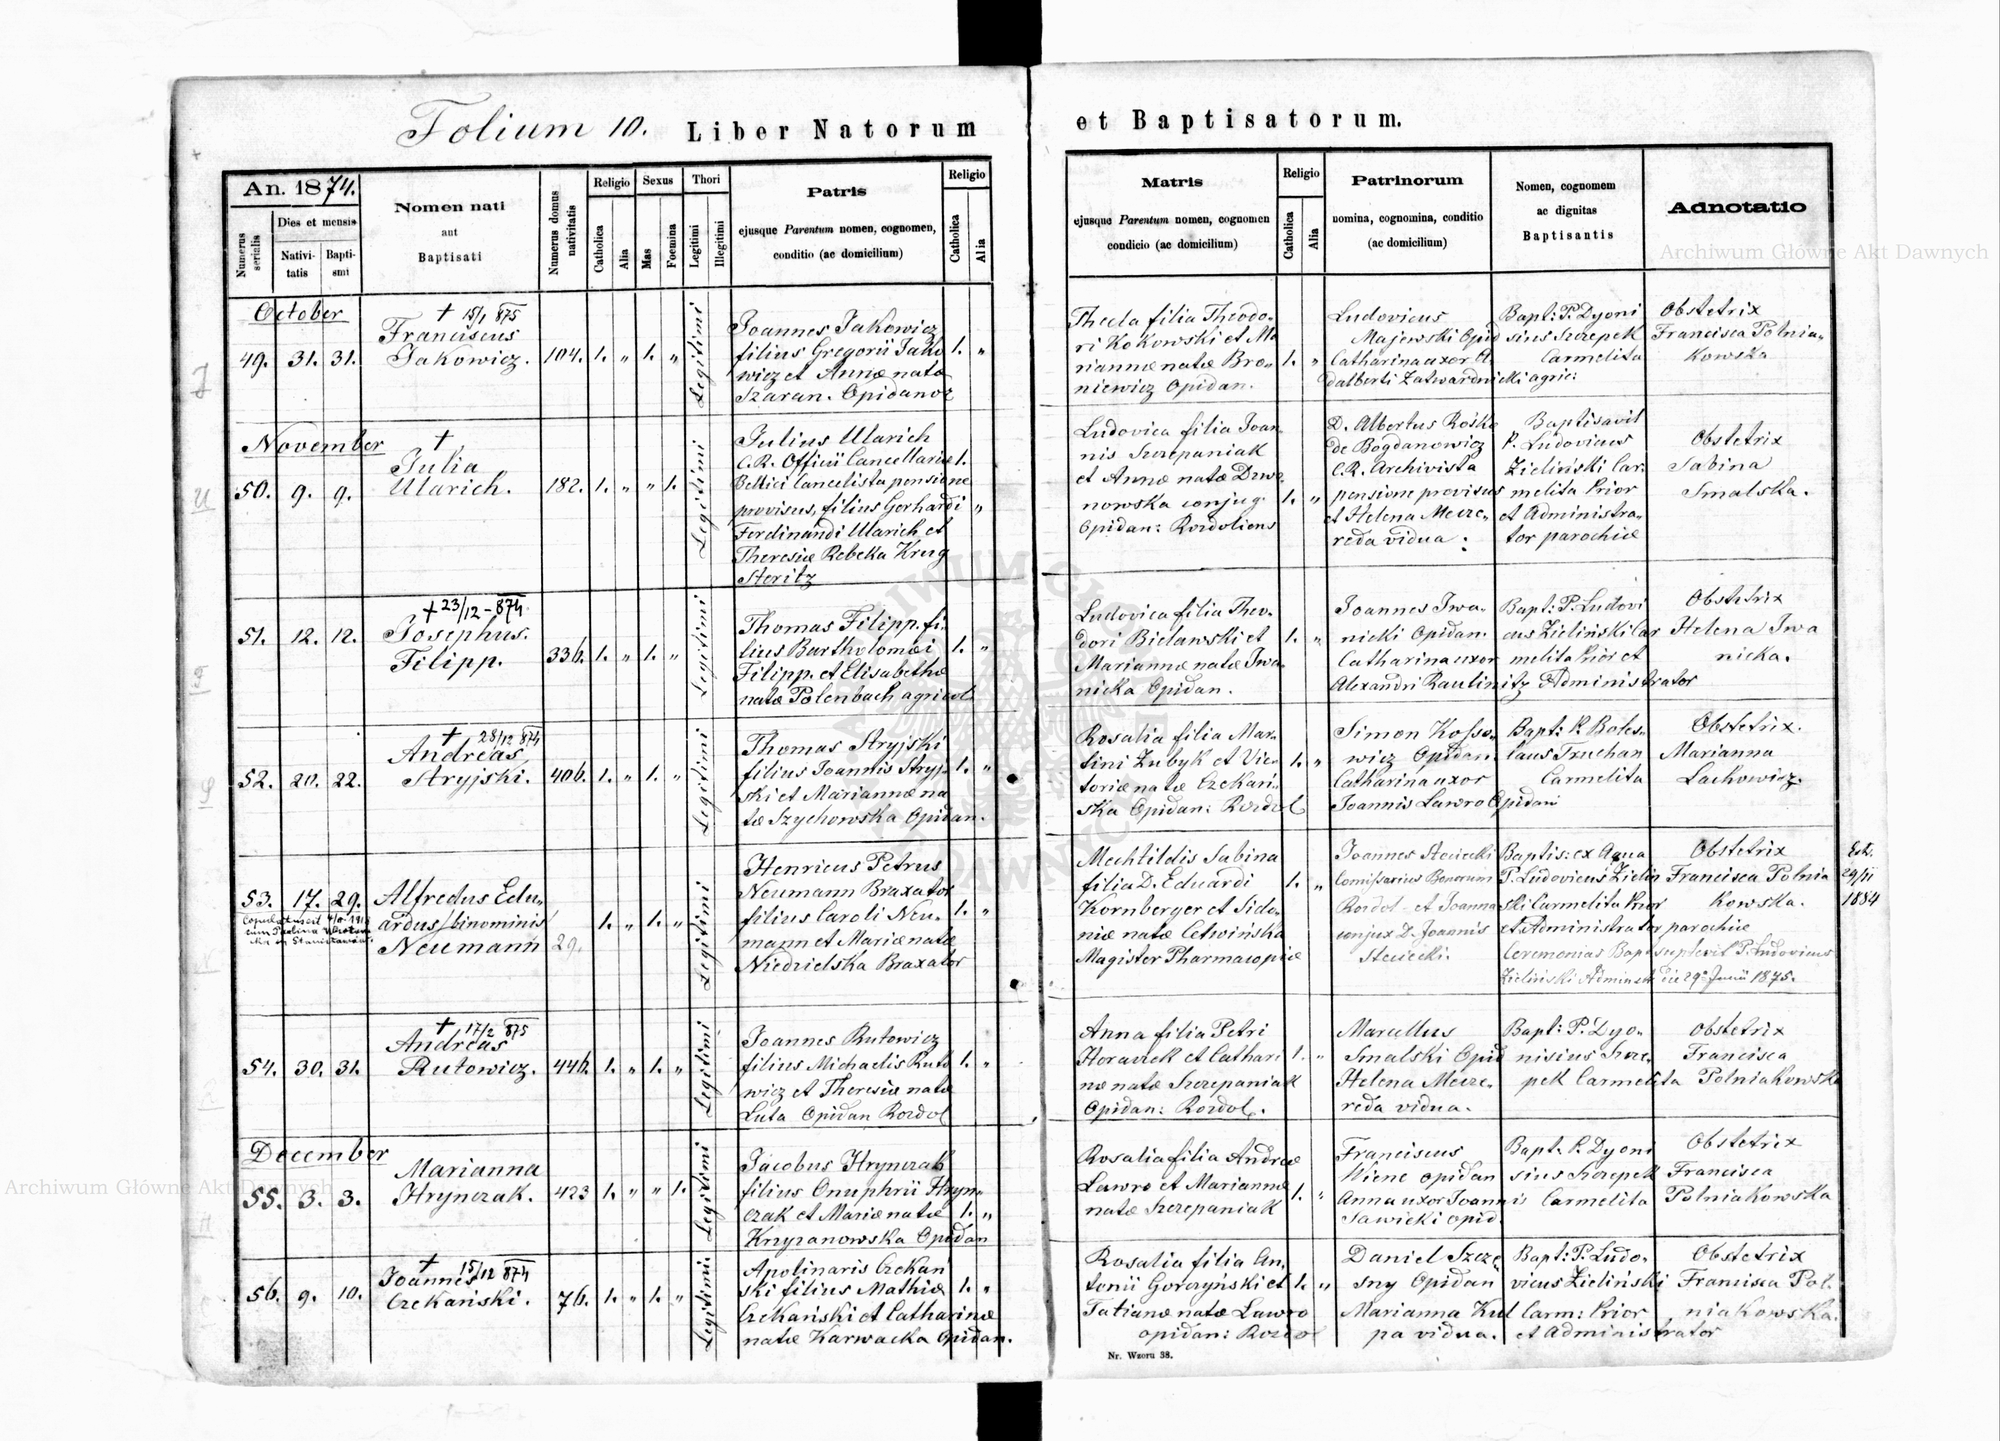 Folium 10. Liber Natorum et Baptisatorum.
An. 1874.
Numerus serialis
Dies et mensis
Nativitatis
Baptismi
Nomen nati
aut
Baptisati
Numerus domus nativitatis
Religio
Catholica
Alia
Sexus
Mas
Foemina
Thori
Legitimi
Illegitimi
Patris
ejusque Parentum nomen, cognomen,
conditio (ac domicilium)
Religio
Catholica
Alia
Matris
ejusque Parentum nomen, cognomen
condicio (ac domicilium)
Religio
Catholica
Alia
Patrinorum
nomina, cognomina, conditio
(ac domicilium)
Nomen, cognomem
ac dignitas
Baptisantis
Adnotatio
Archiwum Główne Akt Dawnych
October
49. 31. 31.
† 15/1 875
Franciscus
Jakowicz.
104. 1. „ 1. „
Legitimi
Joannes Jakowicz
filius Gregorii Jako
wicz et Annæ natæ
Szaran. Opidanor
1. „
Thecla filia Theodo-
ri Kokowski et Ma
riannæ natæ Bro-
niewicz Opidan.
1. „
Ludovicus
Majewski Opid
Catharina uxor A
dalberti Zatwardnicki agric:
Bapt: P. Dyoni
sius Szczepek
Carmelita
Obstetrix
Francisca Polnia-
kowska
November
50. 9. 9.
†
Julia
Ularich.
182. 1. „ „ 1.
Legitimi
Julius Ularich
C.R. Officii Cancellariæ
Bellici Cancelista pensione
provisus, filius Gerhardi
Ferdinandi Ularich et
Theresiæ Rebeka Krug
Steritz
1. „
Ludovica filia Joan
nis Szczepaniak
et Annæ natæ Drwe
nowska conjug.
Opidan: Rozdoliens
1. „
D. Albertus Rośko
de Bogdanowicz
C.R. Archivista
pensione provisus
et Helena Mecze-
reda vidua:
Baptisavit
P. Ludovicus
Zieliński Car.
melita Prior
et Administra-
tor parochiæ
Obstetrix
Sabina
Smalska.
51. 12. 12.
† 23/12 - 874
Josephus.
Filipp.
336. 1. „ 1. „
Legitimi
Thomas Filipp. fi-
lius Bartholomæi
Filipp. et Elisabethæ
natæ Polenbach agricol
1. „
Ludovica filia Theo-
dori Bielawski et
Mariannæ natæ Iwa-
nicka Opidan.
1. „
Joannes Iwa-
nicki Opidan.
Catharina uxor
Alexandri Raulinitz
Bapt: P. Ludovi
cus Zieliński Car
melita Prior et
Administrator
Obstetrix
Helena Iwa
nicka.
52. 20. 22.
† 28/12 874
Andreas
Stryjski.
406. 1. „ 1. „
Legitimi
Thomas Stryjski
filius Joannis Stryj-
ski et Mariannæ na
tæ Szychowska Opidan.
1. „
Rosalia filia Mar-
tini Zubyk et Vic-
toriæ natæ Czekań-
ska Opidan: Rozdol
1. „
Simon Kosso-
wicz Opidan.
Catharina uxor
Joannis Lawro Opidani
Bapt: P. Boles-
laus Truchan
Carmelita
Obstetrix.
Marianna
Lachowicz.
53. 17. 29.
Alfredus Edu-
ardus, binominis
Neumann
29. 1. „ 1. „
Legitimi
Henricus Petrus
Neumann Braxator
filius Caroli Neu-
mann et Mariæ natæ
Niedzielska Braxator
1. „
Mechtildis Sabina
filia D. Eduardi
Kornberger et Sido-
niæ natæ Cetwińska
Magister Pharmacopiæ
1. „
Joannes Steciecki
Comissarius Bonorum
Rozdol et Joanna
conjux D. Joannis
Steciecki.
Baptis: ex Aqua
P. Ludovicus Zieliń
ski Carmelita Prior
et Administrator parochiæ
Ceremonias Bapt. suplevit P. Ludovicus
Zieliński Administ. die 29° Junii 1875.
Obstetrix
Francisca Polnia
kowska.
Ext.
29/11
1884
54. 30. 31.
† 17/2 875
Andreas
Rutowicz.
446. 1. „ 1. „
Legitimi
Joannes Rutowicz
filius Michaelis Ruto
wicz et Theresiæ natæ
Luta Opidan Rozdol
1. „
Anna filia Petri
Horaviek et Cathari
næ natæ Szczepaniak
Opidan: Rozdol.
1. „
Marcellus
Smalski Opid
Helena Mecze-
reda vidua.
Bapt: P. Dyo-
nisius Szcze-
pek Carmelita
Obstetrix
Francisca
Polniakowska
December
55. 3. 3.
Marianna
Hrynczak.
423 1. „ „ 1.
Legitimi
Jacobus Hrynczak
filius Onuphrii Hryn-
czak et Mariæ natæ
Krzyzanowska Opidan
1. „
Rosalia filia Andreæ
Lawro et Mariannæ
natæ Szczepaniak
1. „
Franciscus
Wiene opidan
Anna uxor Joannis
Sawicki opid.
Bapt. P. Dyoni
sius Szczepek
Carmelita
Obstetrix
Francisca
Polniakowska
Archiwum Główne Akt Dawnych
56. 9. 10.
† 15/12 874
Joannes
Czekański.
76. 1. „ 1. „
Legitimi
Apolinaris Czekań
ski filius Mathiæ
Czekański et Catharinæ
natæ Karwacka Opidan.
1. „
Rosalia filia An-
tonii Gorczyński et
Tatianæ natæ Lawro
opidan: Rozdol
1. „
Daniel Szcze
sny Opidan
Marianna Kul
pa vidua.
Bapt: P. Ludo-
vicus Zieliński
Carm: Prior
et Administrator
Obstetrix
Francisca Pol-
niakowska.
Nr. Wzoru 38.